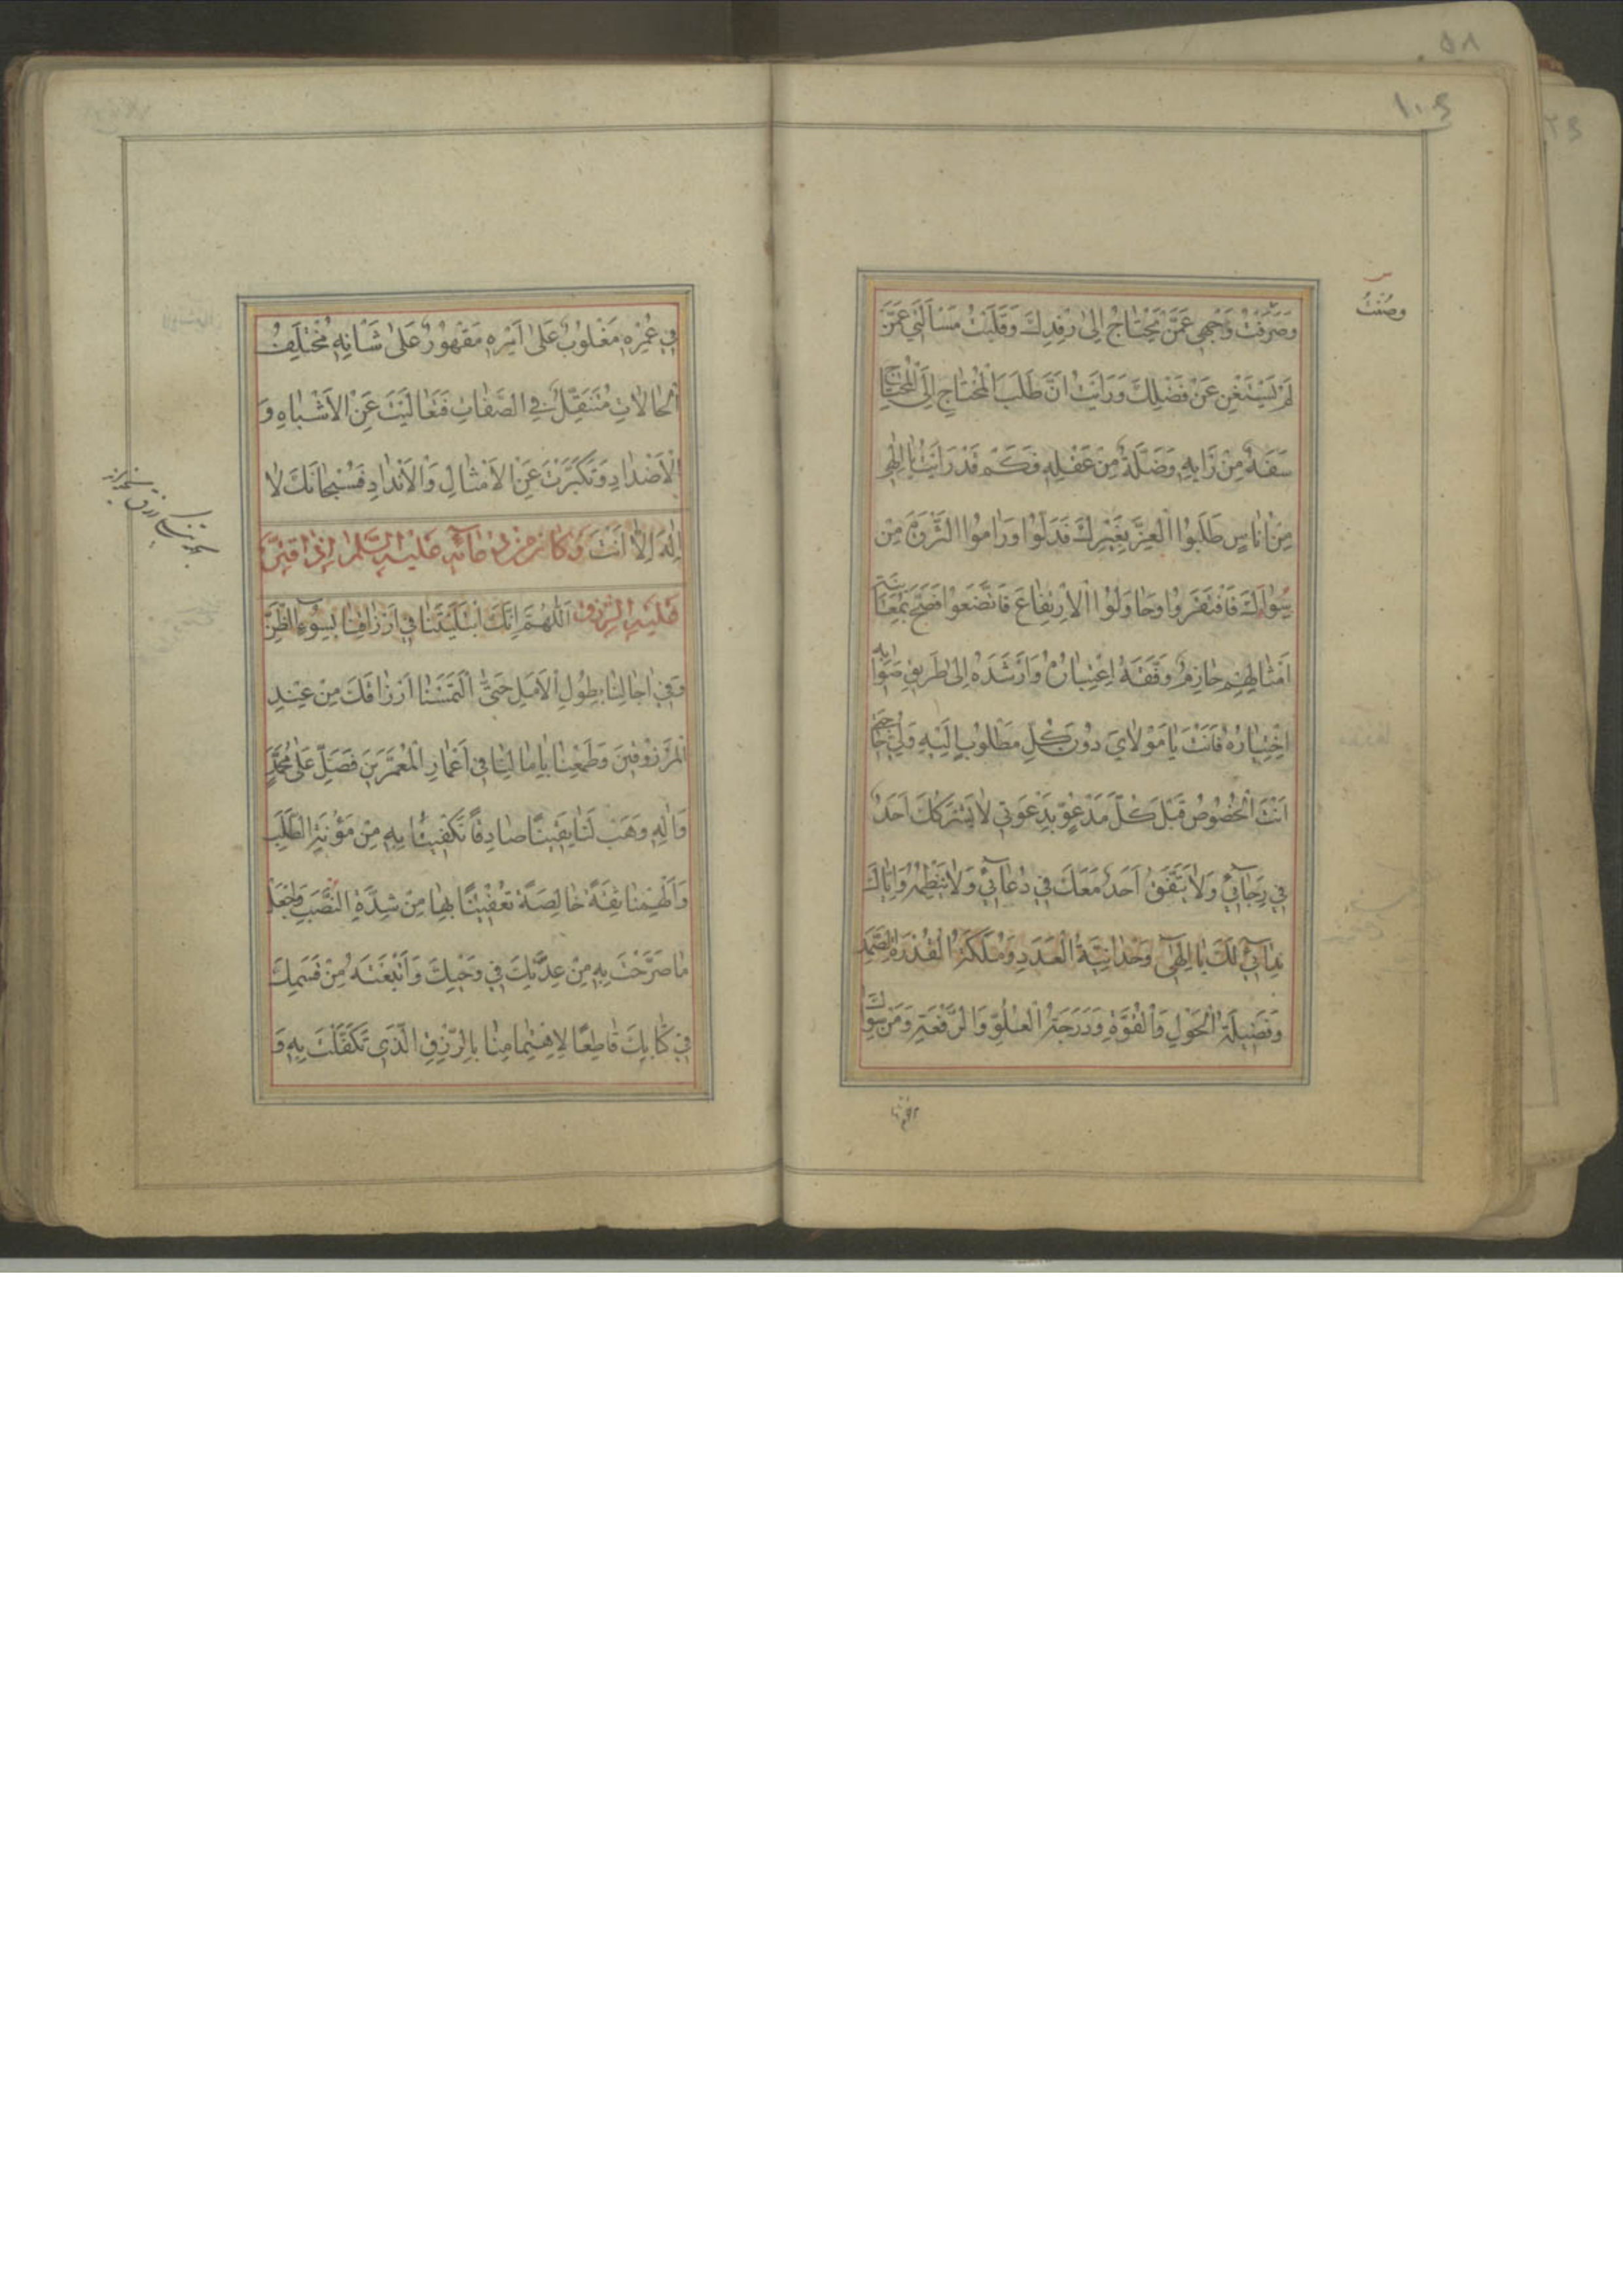 ١٠٤
وصُنْتُ
وَصَرَفْتُ وَجْهِي عَمَّنْ يَحْتَاجُ إِلىٰ رِفْدِكَ وَقَلَبْتُ مَسْأَلَتِي عَمَّنْ
لَمْ يَسْتَغْنِ عَنْ فَضْلِكَ وَرَأَيْتُ أَنَّ طَلَبَ الْمُحْتَاجِ إِلَى الْمُحْتَاجِ
سَفَهٌ مِنْ رَأْيِهِ وَضَلَّةٌ مِنْ عَقْلِهِ فَكَمْ قَدْ رَأَيْتُ يَا إِلٰهِي
مِنْ أُنَاسٍ طَلَبُوا الْعِزَّ بِغَيْرِكَ فَذَلُّوا وَرَامُوا الثَّرْوَةَ مِنْ
سِوَاكَ فَافْتَقَرُوا وَحَاوَلُوا الْاِرْتِفَاعَ فَاتَّضَعُوا فَصَحَّ بِمُعَايَنَةِ
أَمْثَالِهِمْ حَازِمٌ وَفَّقَهُ اعْتِبَارُهُ وَأَرْشَدَهُ إِلىٰ طَرِيقِ صَوَابِهِ
اخْتِيَارُهُ فَأَنْتَ يَا مَوْلَايَ دُونَ كُلِّ مَطْلُوبٍ إِلَيْهِ وَلِيُّ حَاجَتِي
أَنْتَ الْمَخْصُوصُ قَبْلَ كُلِّ مَدْعُوٍّ بِدَعْوَتِي لَا يَشْرَكُكَ أَحَدٌ
فِي رَجَائِي وَلَا يَتَّفِقُ أَحَدٌ مَعَكَ فِي دُعَائِي وَلَا يَنْظِمُهُ وَإِيَّاكَ
نِدَائِي لَكَ يَا إِلٰهِي وَحْدَانِيَّةُ الْعَدَدِ وَمَلَكَةُ الْقُدْرَةِ الصَّمَدِ
وَفَضِيلَةُ الْحَوْلِ وَالْقُوَّةِ وَدَرَجَةُ الْعُلُوِّ وَالرِّفْعَةِ وَمَنْ سِوَاكَ
فِي عُمْرِهِ مَغْلُوبٌ عَلىٰ أَمْرِهِ مَقْهُورٌ عَلىٰ شَأْنِهِ مُخْتَلِفُ
الْحَالَاتِ مُتَنَقِّلٌ فِي الصِّفَاتِ فَتَعَالَيْتَ عَنِ الْأَشْبَاهِ وَ
الْأَضْدَادِ وَتَكَبَّرْتَ عَنِ الْأَمْثَالِ وَالْأَنْدَادِ فَسُبْحَانَكَ لَا
إِلٰهَ إِلَّا أَنْتَ وَكَانَ مِنْ دُعَائِهِ عَلَيْهِ السَّلَمُ إِذَا قُتِّرَ
عَلَيْهِ الرِّزْقُ اَللّٰهُمَّ إِنَّكَ ابْتَلَيْتَنَا فِي أَرْزَاقِنَا بِسُوءِ الظَّنِّ
وَفِي آجَالِنَا بِطُولِ الْأَمَلِ حَتَّى الْتَمَسْنَا أَرْزَاقَكَ مِنْ عِنْدِ
الْمَرْزُوقِينَ وَطَمِعْنَا بِآمَالِنَا فِي أَعْمَارِ الْمُعَمَّرِينَ فَصَلِّ عَلىٰ مُحَمَّدٍ
وَآلِهِ وَهَبْ لَنَا يَقِينًا صَادِقًا تَكْفِينَا بِهِ مِنْ مَؤُنَةِ الطَّلَبِ
وَأَلْهِمْنَا ثِقَةً خَالِصَةً تُعْفِينَا بِهَا مِنْ شِدَّةِ النَّصَبِ وَاجْعَلْ
مَا صَرَّحْتَ بِهِ مِنْ عِدَتِكَ فِي وَحْيِكَ وَأَتْبَعْتَهُ مِنْ قَسَمِكَ
فِي كِتَابِكَ قَاطِعًا لِاهْتِمَامِنَا بِالرِّزْقِ الَّذِي تَكَفَّلْتَ بِهِ وَ